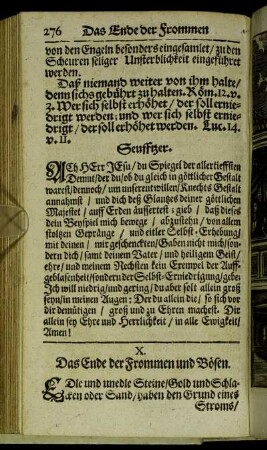 276 Das Ende der Frommen
von den Engeln besonders eingesamlet/ zu den
Scheuren seliger Unsterblichkeit eingeführet
werden.
Daß niemand weiter von ihm halte/
denn sichs gebührt zu halten. Röm. 12. v.
3. Wer sich selbst erhöhet/ der soll ernie-
drigt werden: und wer sich selbst ernie-
drigt/ der soll erhöhet werden. Luc. 14.
v. 11.
Seufftzer.
ACh HErr JEsu/ du Spiegel der allertieffsten
Demut/ der du/ ob du gleich in göttlicher Gestalt
warest/ dennoch/ um unsert willen/ Knechts Gestalt
annahmst/ und dich deß Glantzes deiner göttlichen
Majestet/ auff Erden äussertest: gieb/ daß dieses
dein Beyspiel mich bewege/ abzustehn/ von allem
stoltzen Gepränge/ und eitler Selbst-Erhebung/
mit deinen/ mir geschenckten/ Gaben nicht mich/ son-
dern dich/ samt deinem Vater/ und heiligem Geist/
ehre/ und meinem Nechsten kein Exempel der Auff-
geblasenheit/ sondern der Selbst-Erniedrigung/ gebe.
Ich will niedrig/ und gering/ du aber solt allein groß
seyn/ in meinen Augen: Der du allein die/ so sich vor
dir demütigen/ groß und zu Ehren machest. Dir
allein sey Ehre und Herrlichkeit/ in alle Ewigkeit/
Amen!
X.
Das Ende der Frommen und Bösen.
EDle und unedle Steine/ Gold und Schla-
cken oder Sand/ haben den Grund eines
Stroms/